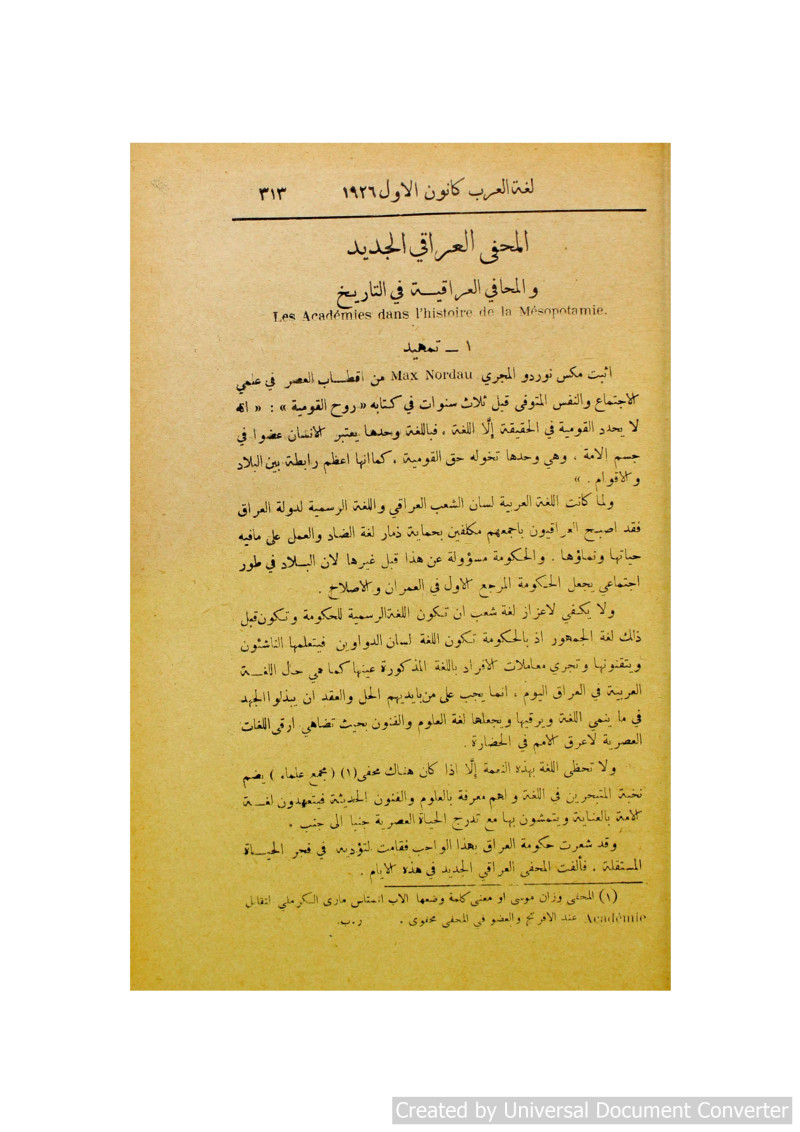 لغة العرب كانون الاول ١٩٢٦ ٣١٣
المحفى العراقي الجديد
والمحافي العراقيـة في التاريخ
Les Académies dans l'histoire de la Mésopotamie.
١ ــ تمهيد
اثبت مكس نوردو المجري Max Nordau من اقطاب العصر في علمي
الاجتماع والنفس المتوفى قبل ثلاث سنوات في كتابه «روح القومية» : « انه
لا يحدد القومية في الحقيقة إلّا اللغة ، فباللغة وحدها يعتبر الانسان عضوا في
جسم الامة ، وهي وحدها تخوله حق القومية ، كما انها اعظم رابطة بين البلاد
والاقوام . »
ولما كانت اللغة العربية لسان الشعب العراقي واللغة الرسمية لدولة العراق
فقد اصبح العراقيون باجمعهم مكلفين بحماية ذمار لغة الضاد والعمل على مافيه
حياتها ونماؤها . والحكومة مسؤولة عن هذا قبل غيرها لان البلاد في طور
اجتماعي يجعل الحكومة المرجع الاول في العمران والاصلاح .
ولا يكفي لاعزاز لغة شعب ان تكون اللغة الرسمية للحكومة وتكون قبل
ذلك لغة الجمهور اذ بالحكومة تكون اللغة لسان الدواوين فيتعلمها الناشئون
ويتقنونها وتجري معاملات الافراد باللغة المذكورة عينها كما هي حال اللغـة
العربية في العراق اليوم ، انما يجب على من بايديهم الحل والعقد ان يبذلوا الجهد
في ما ينمي اللغة ويرقيها ويجعلها لغة العلوم والفنون بحيث تضاهي ارقى اللغات
العصرية لاعرق الامم في الحضارة .
ولا تحظى اللغة بهذه النعمة إلّا اذا كان هناك محفى (١) ( مجمع علماء ) يضم
نخبة المتبحرين في اللغة واهم معرفة بالعلوم والفنون الحديثة فيتعهدون لغـة
الامة بالعناية ويتمشون بها مع تدرج الحياة العصرية جنبا الى جنب .
وقد شعرت حكومة العراق بهذا الواجب فقامت لتؤديه في فجر الحيـاة
المستقلة . فألفت المحفى العراقي الجديد في هذه الايام .
(١) المحفى وزان موسى او معنى كلمة وضعها الاب انستاس ماري الكرملي لتقابل
Académie عند الافرنج والعضو في المحفى محفوي . ر.ب.
Created by Universal Document Converter